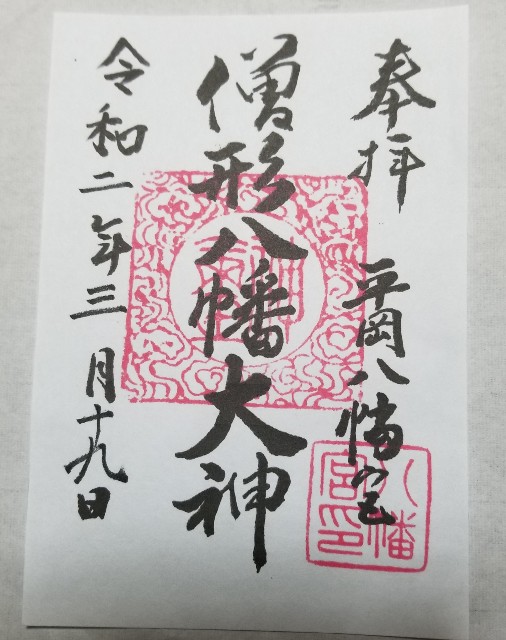 奉拝 平岡八幡宮
僧形八幡大神
令和二年三月十九日
八幡
宮印